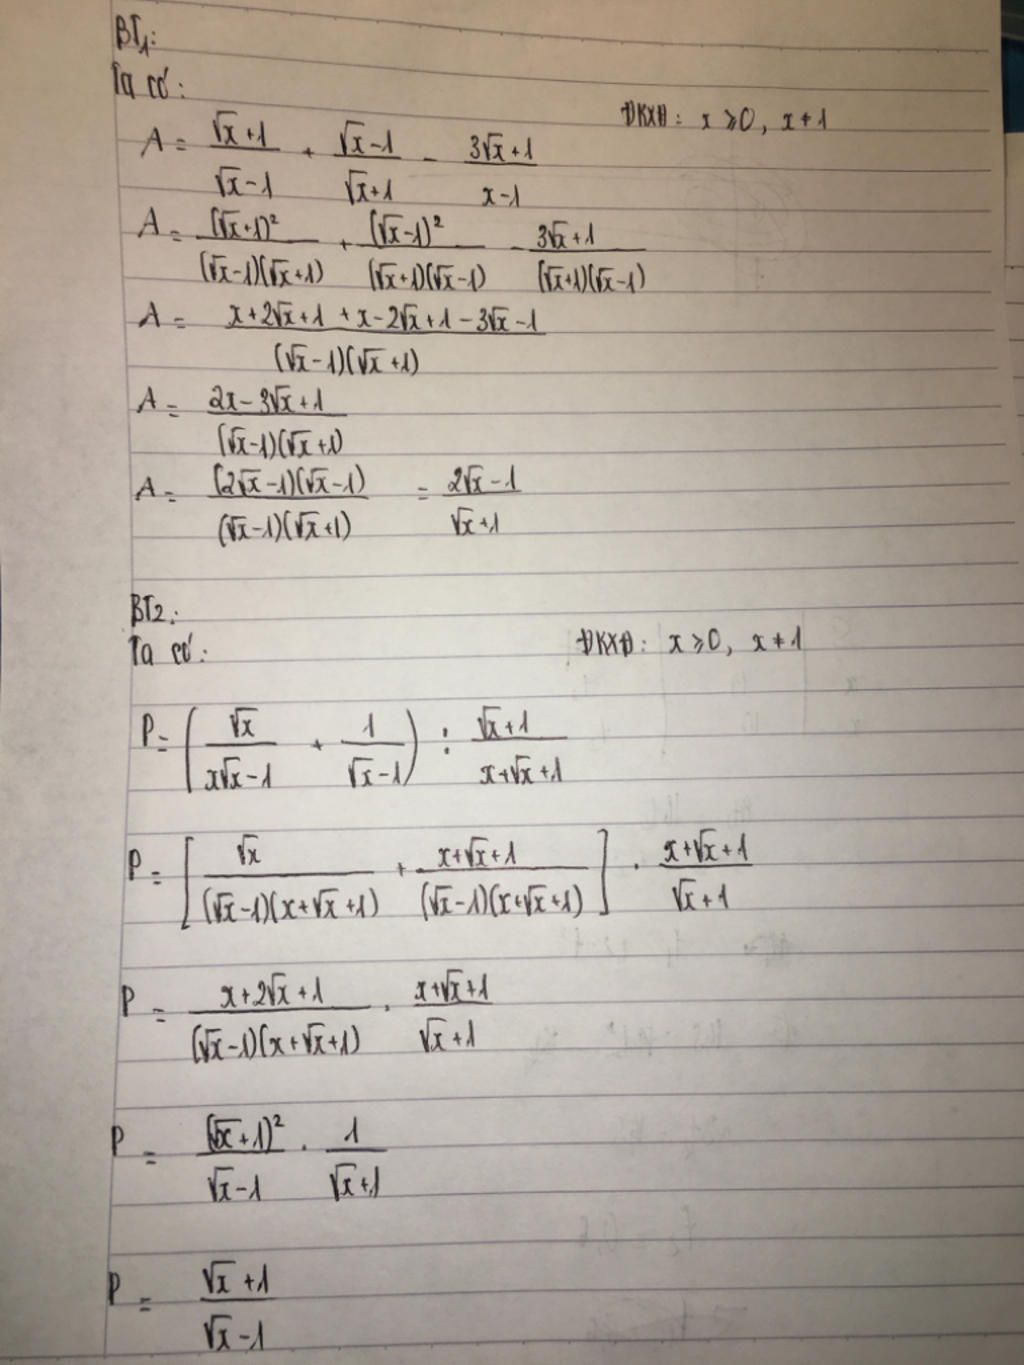 BT1:
Ta có:
ĐKXĐ: x ⩾ 0, x ≠ 1
A = (√x+1)/(√x-1) + (√x-1)/(√x+1) - (3√x+1)/(x-1)
A = (√x+1)²/((√x-1)(√x+1)) + (√x-1)²/((√x+1)(√x-1)) - (3√x+1)/((√x+1)(√x-1))
A = (x+2√x+1+x-2√x+1-3√x-1)/((√x-1)(√x+1))
A = (2x-3√x+1)/((√x-1)(√x+1))
A = ((2√x-1)(√x-1))/((√x-1)(√x+1)) = (2√x-1)/(√x+1)
BT2:
Ta có:
ĐKXĐ: x ⩾ 0, x ≠ 1
P = (√x/(x√x-1) + 1/(√x-1)) : (√x+1)/(x+√x+1)
P = [√x/((√x-1)(x+√x+1)) + (x+√x+1)/((√x-1)(x+√x+1))] . (x+√x+1)/(√x+1)
P = (x+2√x+1)/((√x-1)(x+√x+1)) . (x+√x+1)/(√x+1)
P = (√x+1)²/(√x-1) . 1/(√x+1)
P = (√x+1)/(√x-1)